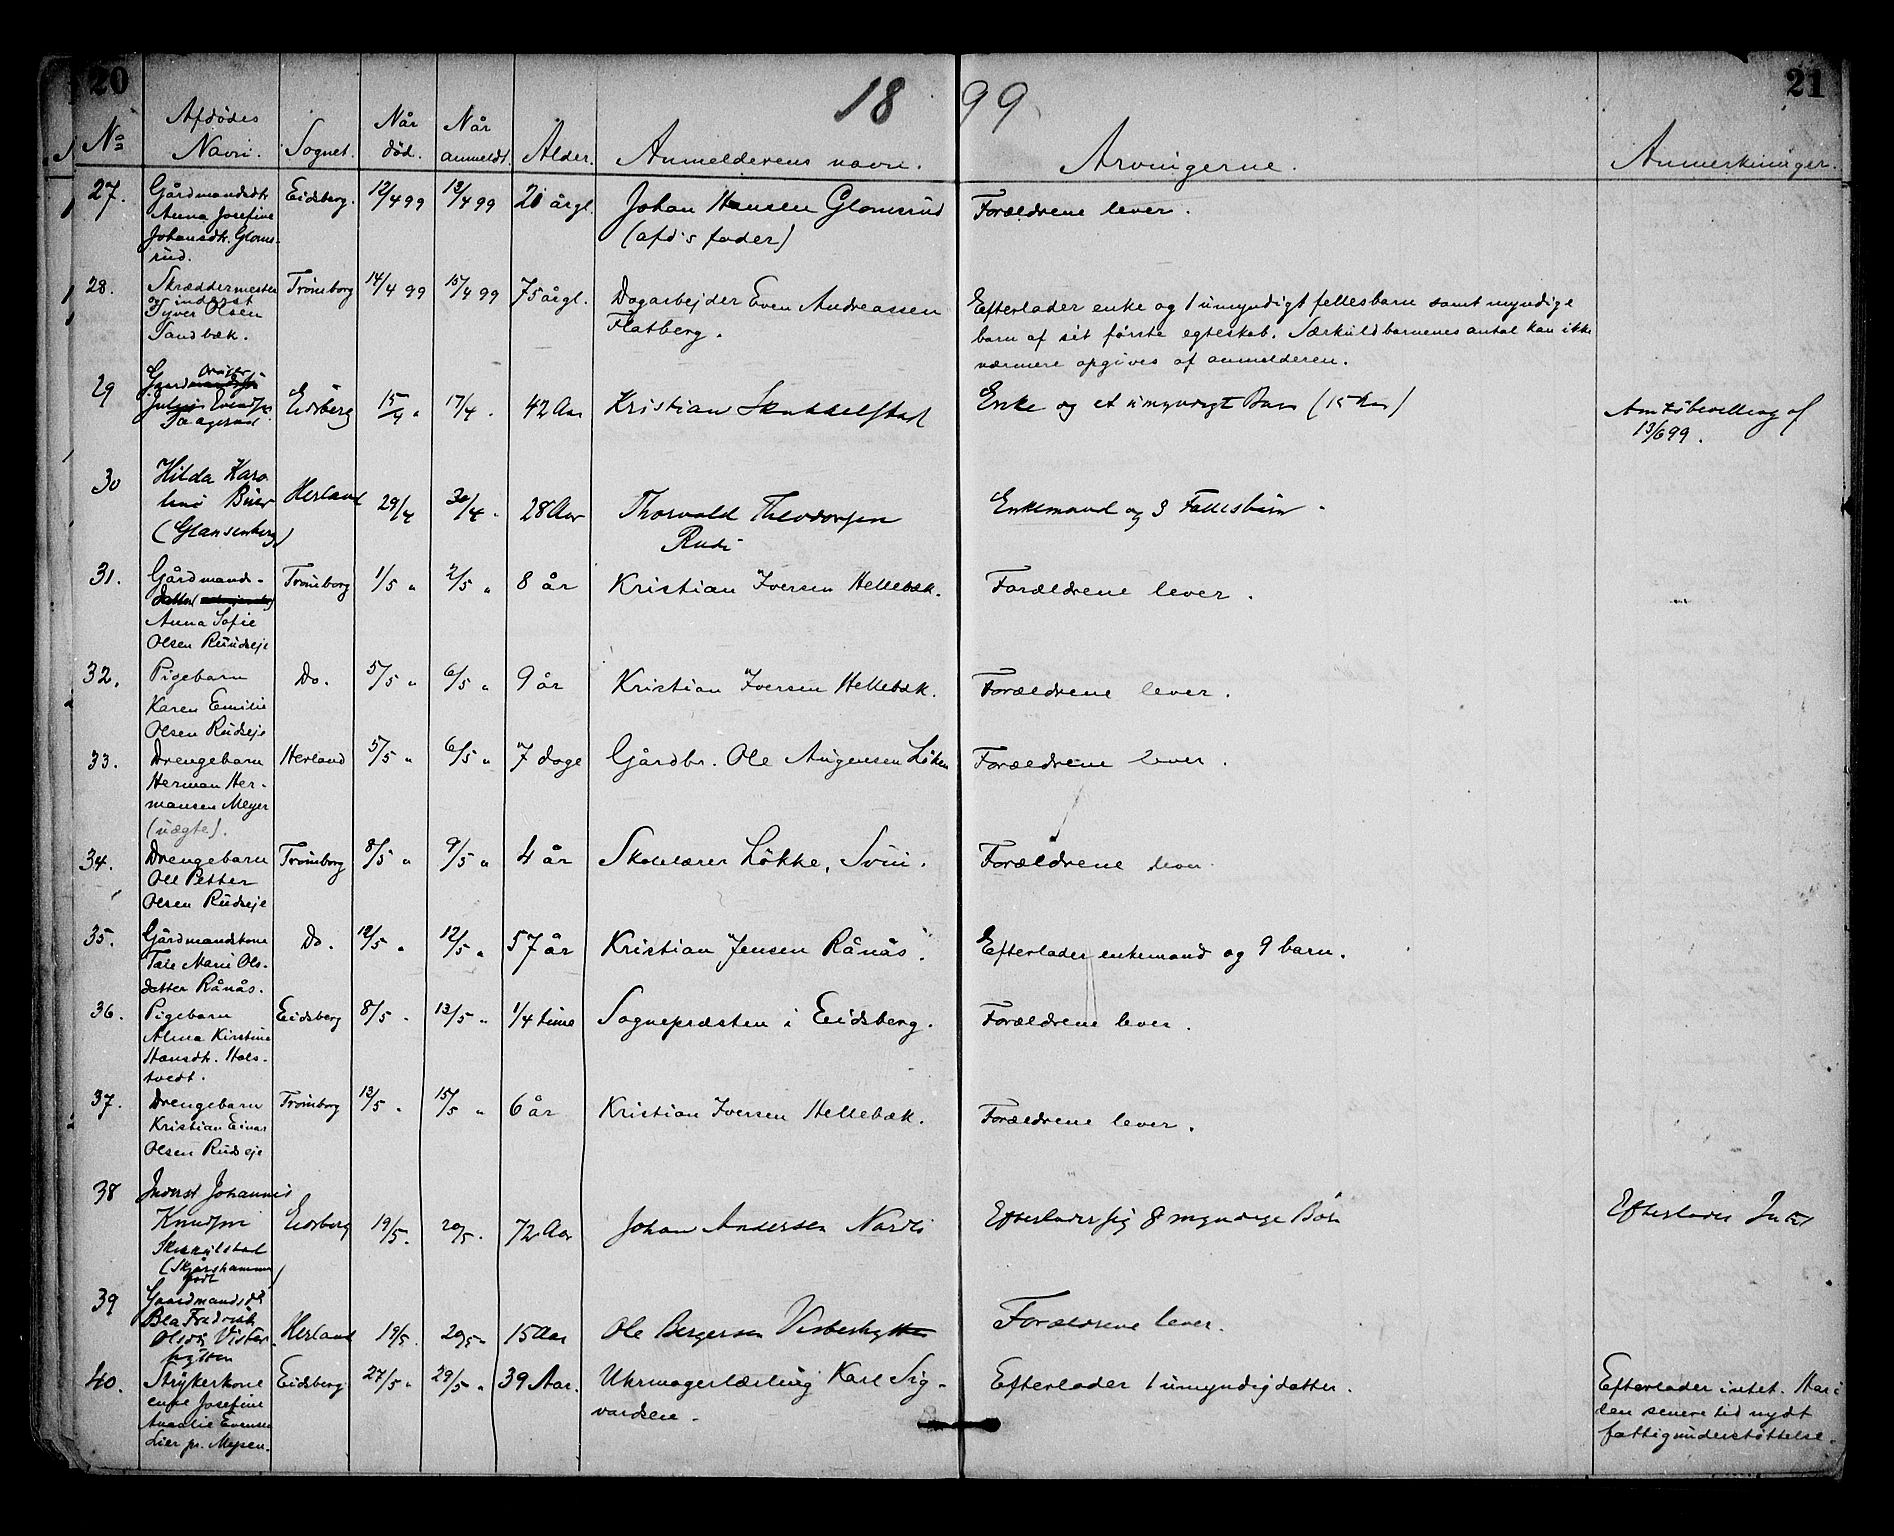 20
18 99
21
No
Afdødes Navn.
Sognet.
Når død.
Når anmeldt.
Alder.
Anmelderens navn.
Arvingerne.
Anmerkninger.
27. Gårdmandsdtr. Eidsberg. 12/4 99 13/4 99 21 årgl. Johan Hansen Glomsrud Forældrene lever.
Anna Josefine (afd's fader)
Johansdtr. Gloms-
rud.
28. Skræddermester Trömborg 14/4 99 15/4 99 75 årgl. Dagarbejder Even Andreassen Efterlader enke og 1 umyndigt fellesbarn samt myndige
og inderst Flatberg. barn af sit første egteskab. Særkuldbarnenes antal kan ikke
Syver Olsen nærmere opgives af anmelderen.
Sandbæk.
29 Eidsberg 15/4 " 17/4 . 42 Aar Kristian Skubbelstad Enke og et umyndigt Barn (15 Aar) Amtsbevilling af
13/6 99.
30 Hilda Karo Herland 29/4 30/4 . 28 Aar Thorvald Theodorsen Enkemand og 3 Fællesbørn .
line Rudi
(Glansenberg)
31. Gårdmands- Trömborg 1/5 " 2/5 " 8 år Kristian Iversen Hellebæk. Forældrene lever .
datter
Anna Sofie
Olsen Rudseje
32. Pigebarn Do. 5/5 " 6/5 " 9 år Kristian Iversen Hellebæk. Forældrene lever .
Karen Emilie
Olsen Rudseje
33. Drengebarn Herland 5/5 " 6/5 " 7 dage Gårdbr. Ole Augensen Löken Forældrene lever .
Herman Her-
mansen Meyer
(uægte).
34. Drengebarn Trömborg 8/5 " 9/5 " 4 år Skolelærer Løkke, Forældrene lever
Ole Petter
Olsen Rudseje
35. Gårdmandskone Do. 12/5 " 12/5 " 57 år Kristian Jensen Rånås. Efterlader enkemand og 9 barn.
Tale Marie Ols-
datter Rånås.
36. Pigebarn Eidsberg 8/5 " 13/5 " 1/4 time Sognepræsten i Eidsberg. Forældrene lever .
Alma Kirstine
Hansdtr. Hols-
tvedt.
37. Drengebarn Trömborg 13/5 " 15/5 " 6 år Kristian Iversen Hellebæk. Forældrene lever .
Kristian Einar
Olsen Rudseje
38 Inderst Johannes Eidsberg 19/5. 20/5. 72 Aar Johan Andersen Efterlader sig 8 myndige Børn Efterlader Intet
Knudsen
39 Gaardmandsdt Herland 19/5. 20/5. 15 Aar Ole Bergersen Forældrene lever.
40. Eidsberg 27/5 " 29/5 " 39 Aar. Uhrmagerlærling Karl Sig- Efterlader 1 umyndig datter. Efterlader intet. Har i
enke Josefine vardsen. den senere tid nydt
Amalie Evensen fattigunderstøttelse.
Lier pr. Mysen.